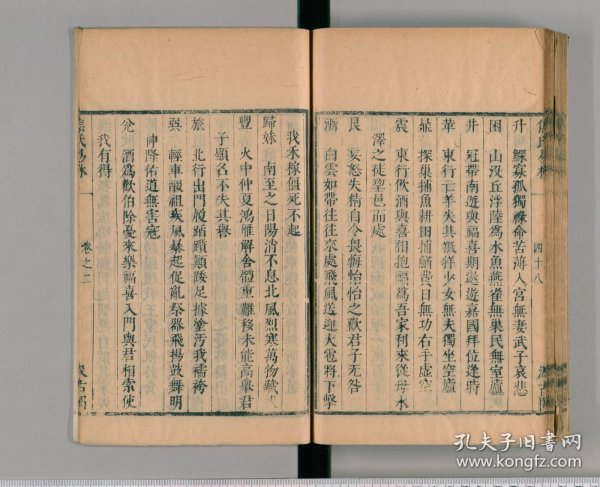 升 鰥寡孤獨祿命苦薄入宮無妻武子哀悲
困 山沒丘浮陸為水魚燕雀無巢民無室廬
井 冠帶南遊與福喜期邀遊嘉國拜位逢時
革 東行亡羊失其羝牂少女無夫獨坐空廬
鼎 探巢捕魚耕田捕鰌費日無功右手虛空
震 東行飲酒與喜相抱福為吾家利來從母水
澤之徒望邑而處
艮 妄怒失精自令畏悔怡怡之歡君子死咎
漸 白雲如帶往往來處飛風送迎大雹將下擊
我禾稼僵死不起
歸妹 南至之日陽消不息北風烈寒萬物藏
豐 火中仲夏鴻雁解舍體重難移未能高舉君
子顯名不失其譽
旅 北行出門履蹈躓顛踒足據塗汚我襦袴
巽 輕車醊祖疾風暴起促亂祭器飛揚鼓舞明
神降佑道無害寇
兌 酒為歡伯除憂來樂福喜入門與君相索使
我有得
焦氏易林
卷之三
四十八
孔夫子旧書网
www.kongfz.com